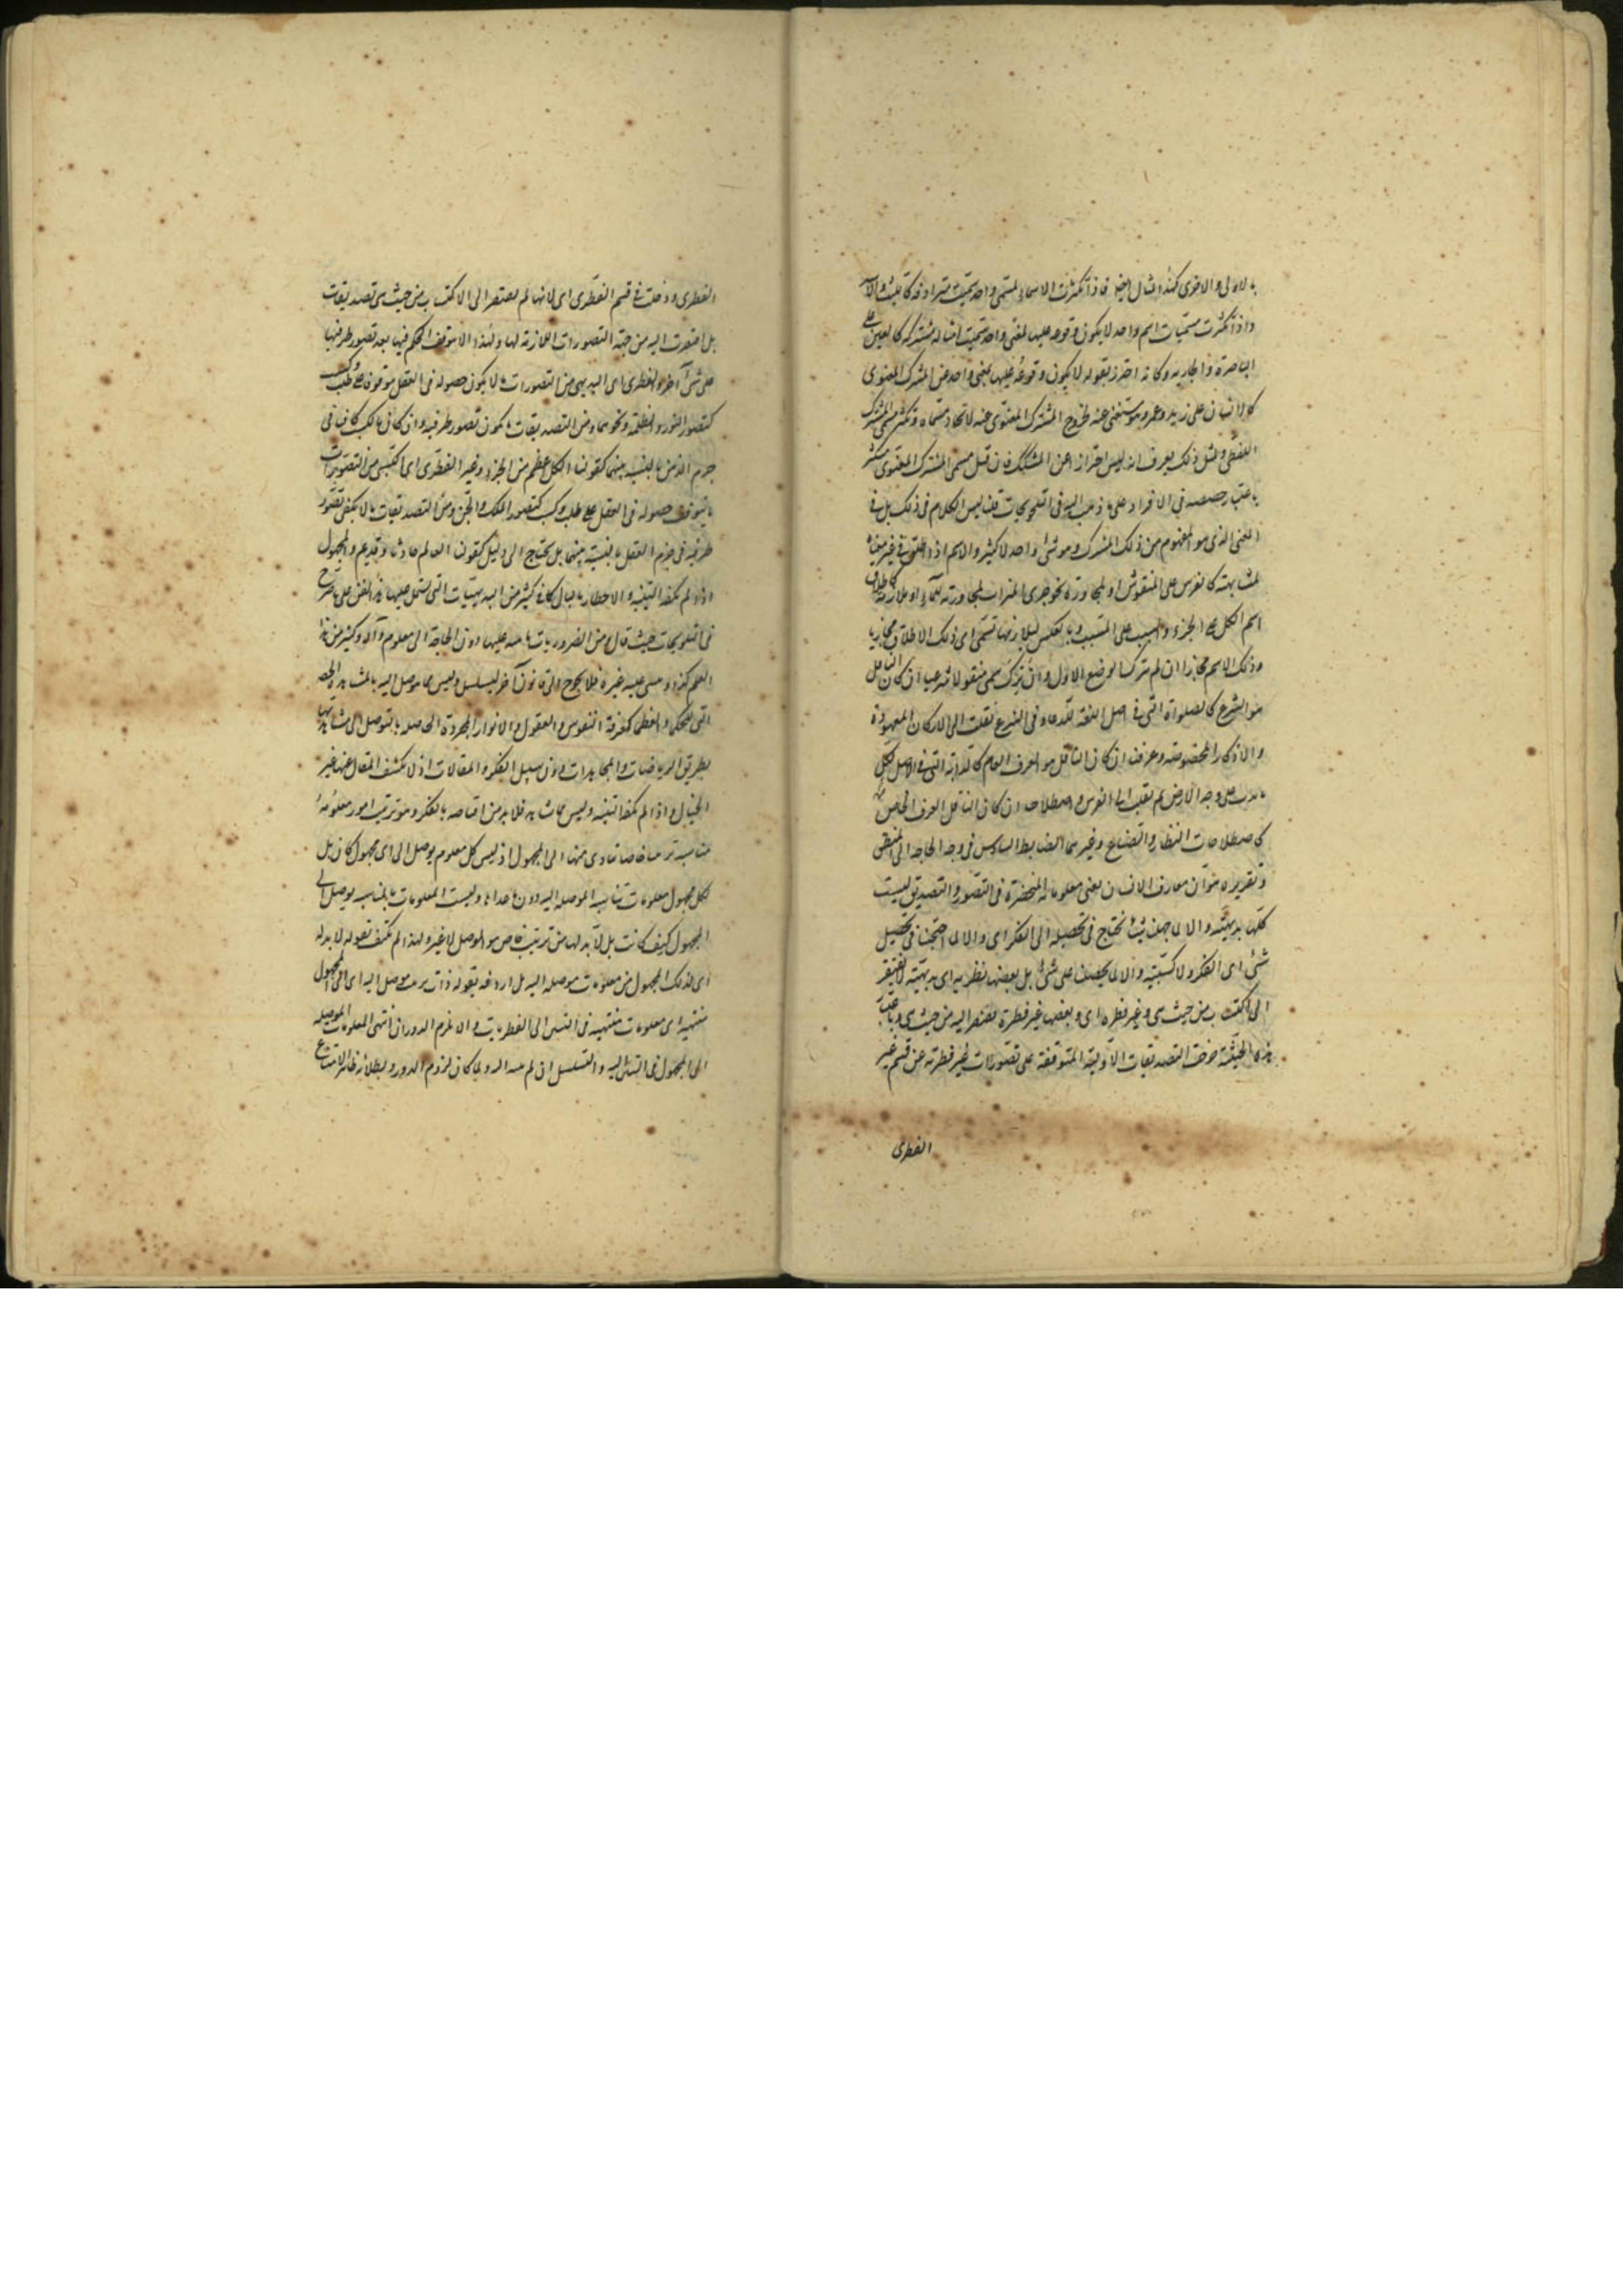 بالاولى والاخرى كهذا المثال ايضا فاذا تكثرت الاسماء لمسمى واحد سميت مترادفة كالليث والاسد
واذا تكثرت مسميات اسم واحد لا يكون وقوعه عليها بمعنى واحد سميت امثاله مشتركة كالعين على
الباصرة والجارية وكانه احترز بقوله لا يكون وقوعه عليها بمعنى واحد عن المشترك المعنوى
كالانسان على زيد وعمرو وهو مستغنى عنه لخروج المشترك المعنوى عنه لاتحاد مسماه وتكثر مسمى المشترك
اللفظى ولمثل ذلك يعرف انه ليس احترازا عن المشكك فان قيل مسمى المشترك المعنوى متكثر
باعتبار حصصه فى الافراد على ما ذهب اليه فى التلويحات قلنا ليس الكلام فى ذلك بل فى
المعنى الذى هو المفهوم من ذلك المشترك وهو شئ واحد لا كثير والاسم اذا اطلق فى غير معناه
لمشابهة كالفرس على المنقوش او لمجاورة نحو جرى الميزاب لمجاورته للماء او ملازمة كاطلاق
اسم الكل على الجزء والسبب على المسبب وبالعكس لتلازمها تسمى اى ذلك الاطلاق مجازيا
وذلك الاسم مجازا ان لم يترك الوضع الاول وان ترك سمى منقولا شرعيا ان كان الناقل
هو الشرع كالصلوة التى فى اصل اللغة للدعاء وفى الشرع نقلت الى الاركان المعهودة
والاذكار المخصوصة وعرفيا ان كان الناقل هو العرف العام كالدابة التى فى الاصل لكل
ما يدب على وجه الارض ثم نقلت الى الفرس واصطلاحا ان كان الناقل العرف الخاص
كاصطلاحات النظار والصناع وغيرهما الضابط السادس فى وجه الحاجة الى المنطق
وتقريره هو ان معارف الانسان يعنى معلوماته المنحصرة فى التصور والتصديق ليست
كلها بديهية والا لما جهلنا شيئا نحتاج فى تحصيله الى الفكر اى والا لما احتجنا فى تحصيل
شئ اى الفكر ولا كسبية والا لما تحصلنا على شئ بل بعضها فطرية اى بديهية لا تفتقر
الى اكتساب من حيث هى وغير فطرة اى وبعضها غير فطرة تفتقر اليه من حيث هى وباعتبار
هذه الحيثية خرجت التصديقات الاولية المتوقفة على تصورات غير فطرية عن قسم غير
الفطرى
الفطرى ودخلت فى قسم الفطرى اى لانها لم تفتقر الى الاكتساب من حيث هى تصديقات
بل افتقرت اليه من جهة التصورات اللازمة لها ولهذا لا يتوقف الحكم فيها بعد تصور طرفيها
على شئ آخر والفطرى اى البديهى من التصورات ما لا يكون حصوله فى العقل موقوفا على طلب وكسب
كتصور النور والظلمة ونحوهما ومن التصديقات ما يكون تصور طرفيه وان كان بالكسب كافيا فى
جزم الذهن بالنسبة بينهما كقولنا الكل اعظم من الجزء وغير الفطرى اى الكسبى من التصورات
ما يتوقف حصوله فى العقل على طلب وكسب كتصور الملك والجن ومن التصديقات ما لا يكفى تصور
طرفيه فى جزم العقل بالنسبة بينهما بل يحتاج الى دليل كقولنا العالم حادث او قديم والمجهول
اذا لم يكفه التنبيه والاخطار بالبال كما فى كثير من البديهيات التى يشتمل عليها هذا الفن على ما صرح
فى التلويحات حيث قال من الضروريات ما ينبه عليها دون الحاجة الى معلوم وآلة وكثير من هذا
العلم كذا ويبنى عليه غيره فلا يحوج الى قانون آخر ليتسلسل وليس مما يتوصل اليه بالمشاهدة الحقة
التى للحكماء العظماء كمعرفة النفوس والعقول والانوار المجردة الحاصلة بالتوصل الى مشاهدتها
بطريق الرياضات والمجاهدات دون سبيل الفكر والمقالات اذ لا يكشف المقال عنها غير
الخيال واذا لم يكفه التنبيه وليس مما يشاهد فلا بد من اقتناصه بالفكر وهو ترتيب امور معلومة
مناسبة ترتيبا خاصا يتادى منها الى المجهول اذ ليس كل معلوم يوصل الى اى مجهول كان بل
لكل مجهول معلومات تناسبه الموصلة اليه دون ما عداها وليست المعلومات المناسبة يوصل الى
المجهول كيف كانت بل لا بد لها من ترتيب خاص هو الموصل لا غير ولهذا لم يكتف بقوله لا بد له
اى لذلك المجهول من معلومات موصلة اليه بل اردفه بقوله ذات ترتيب موصل اليه اى الى المجهول
منتهية اى معلومات منتهية فى التبيين الى الفطريات والا لزم الدور ان انتهى المعلومات الموصلة
الى المجهول فى التبيين اليه والتسلسل ان لم ينته اليه ولما كان لزوم الدور وبطلانه ظاهرا لامتناع